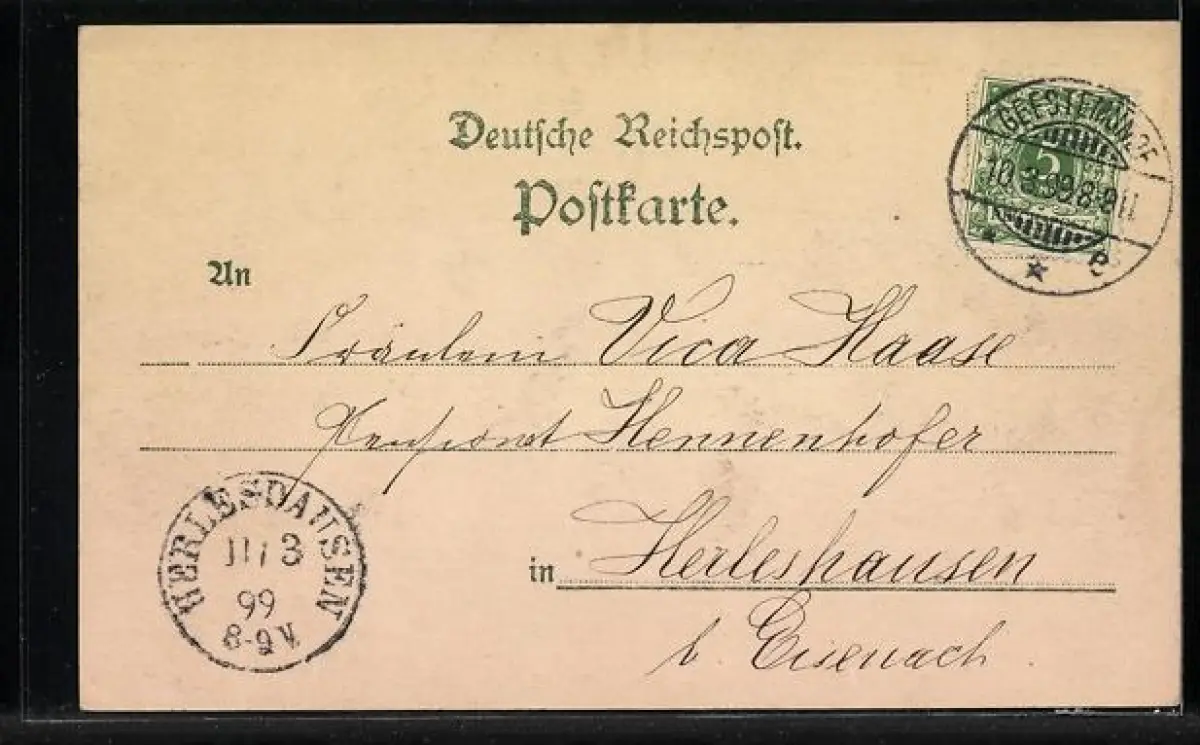 Deutsche Reichspost.
Postkarte.
GEESTEMÜNDE
5
10.3.99.8-9N
* * e
An
Fräulein Vica Haase
Pensionat Hennenhofer
in Herleshausen
b. Eisenach
HERLESHAUSEN
11/3
99
8-9V.